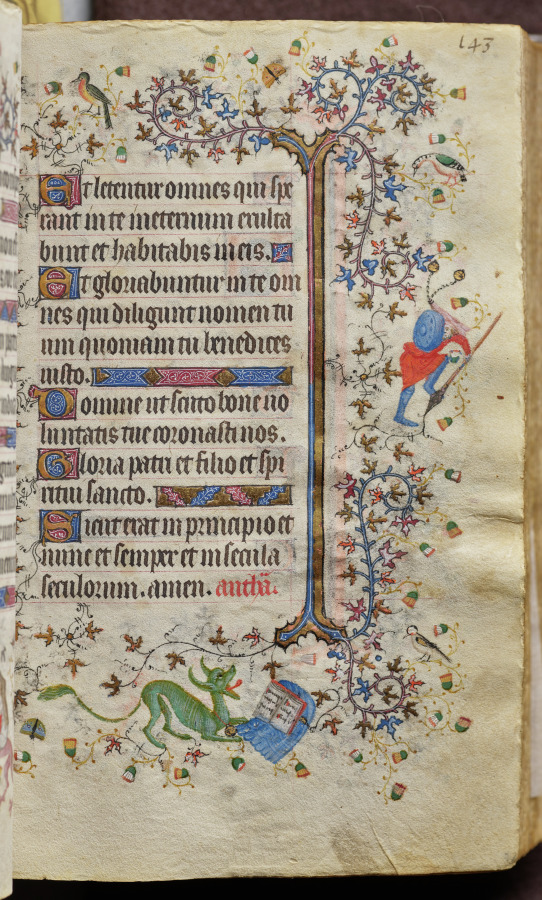 143
Et letentur omnes qui spe
rant in te in eternum exulta
bunt et habitabis in eis.
Et gloriabuntur in te om
nes qui diligunt nomen tu
um quoniam tu benedices
iusto.
Domine ut scuto bone uo
luntatis tue coronasti nos.
Gloria patri et filio et spi
ritui sancto.
Sicut erat in principio et
nunc et semper et in secula
seculorum. amen. anthã.